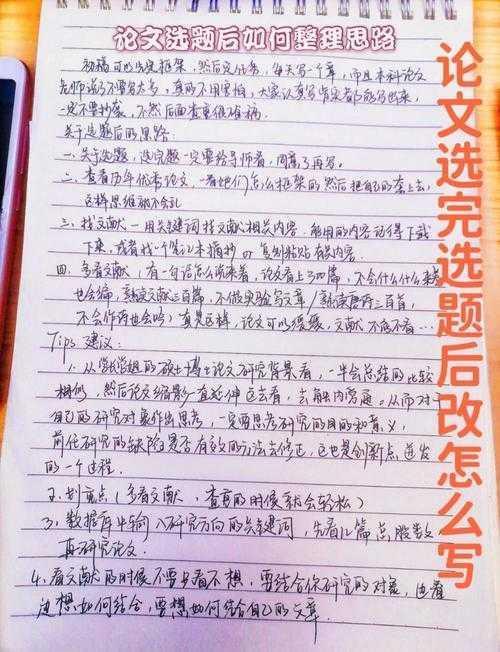 论文选题后如何整理思路
论文选完选题后改怎么写
初稿可以先定框架，然后定任务，每天写一个章，而且本科论文
老师说了不要写太长，真的不用害怕，大家认真写肯定都能写出来，
一定不要抄袭，不然后面查重很麻烦。
关于选题后的思路：
一、关于选题，选完题一定要给导师看，同意了再写。
二、查看历年优秀论文，看她们怎么框架的然后把自己的套上去，
这样思维就不会乱
三、找文献一用关键词找文献相关内容，能用的内容记得下载
下来，或者找一个笔记本摘抄 or 复制粘贴有关内容。
四、多看文献，有一句话怎么说来着，论文看上了四篇，不会什么什么来着
也会编，熟读文献三百篇，不做实验写文章/熟读唐诗三百首，
不会作诗也会吟）真是这样，论文可以缓缓，文献不能不看…
Tips 建议：
1、从学长学姐的硕士博士论文研究背景看，一半会总结的比较
相似，然后论文缩影一直延伸区去看，去角内容题。从而对于
自己的研究对象作出思考，一定要思考研究的目的和意义，
前人研究的缺陷是否有效的方法去修正，这也是创新点迸发
的一个过程。
2、划重点（多看文献，查重的时候就会轻松）
3、数据库中输入研究方向的关键词，先看几篇点
再研究论文.
4、看文献的时候不要只看不想，要结合你研究的对象，边看
边想如何结合，要想如何结合自己的文章.